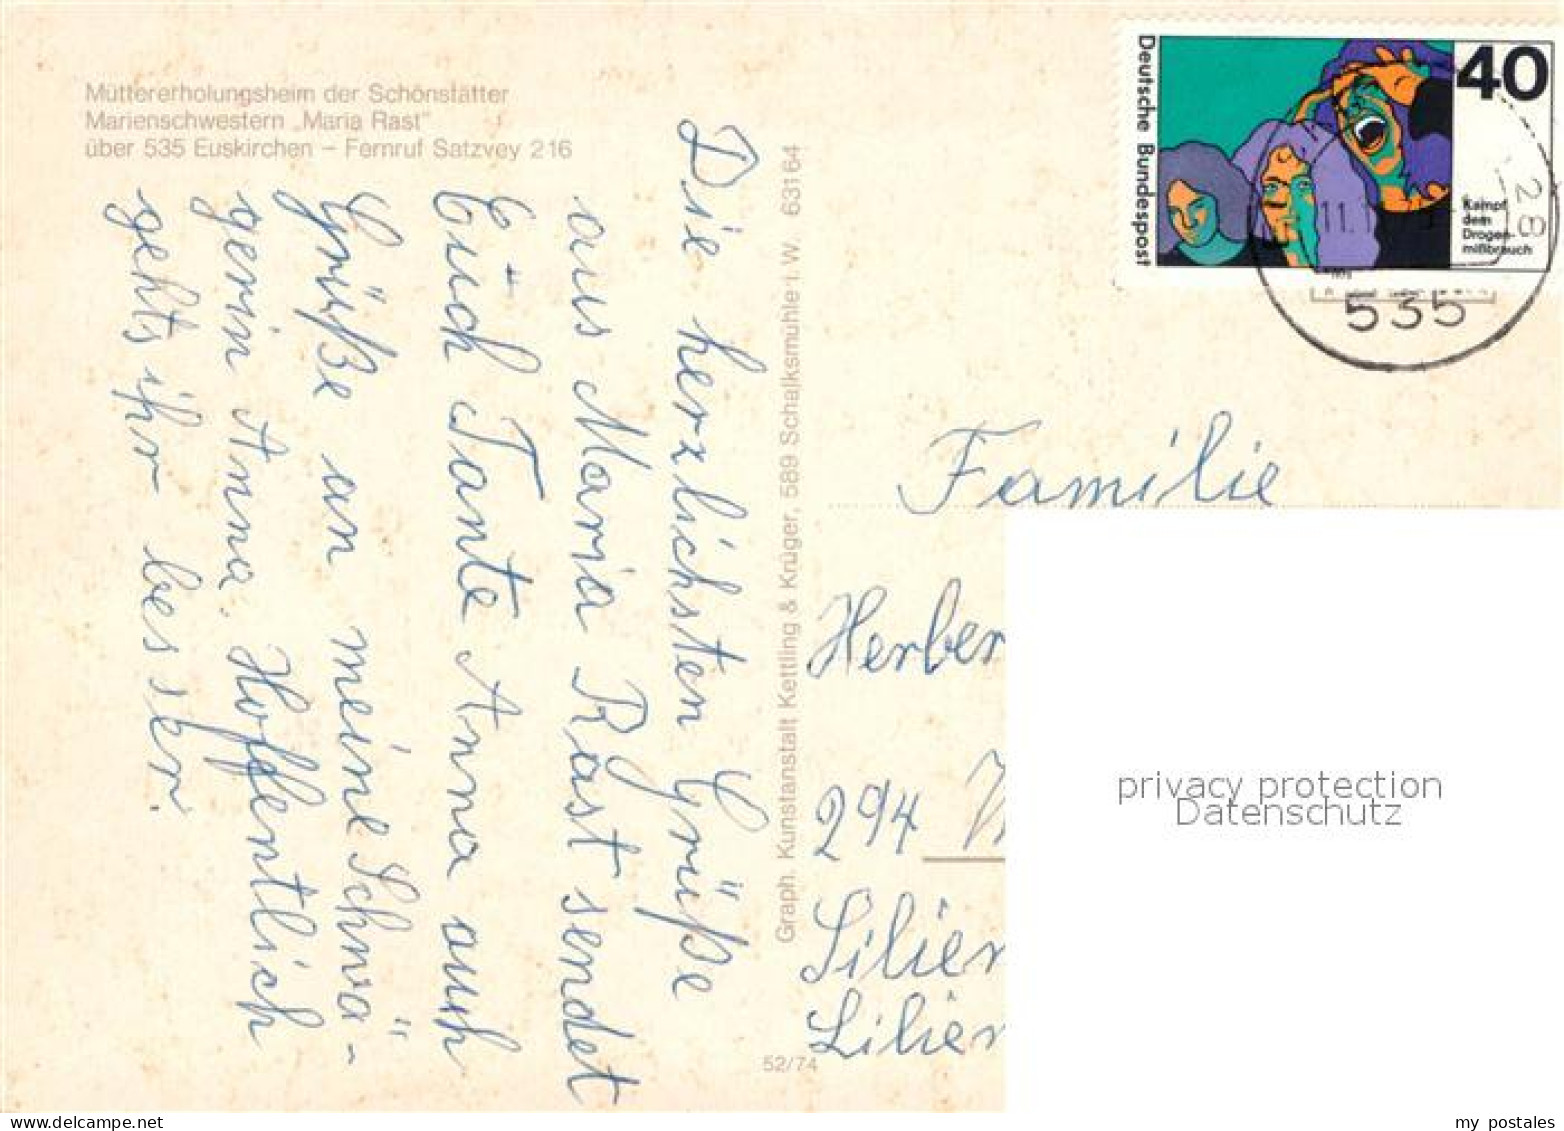 Müttererholungsheim der Schönstätter
Marienschwestern „Maria Rast"
über 535 Euskirchen – Fernruf Satzvey 216
Die herzlichsten Grüße
aus Maria Rast sendet
Euch Tante Anna auch
Grüße an meine Schwä-
gerin Anna. Hoffentlich
gehts ihr besser.
Graph. Kunstanstalt Kettling & Krüger, 589 Schalksmühle i. W. 63164
52/74
Deutsche Bundespost
40
Kampf
dem
Drogen-
mißbrauch
1975
11.1
28
535
Familie
Herber
294
Lilien
Lilien
privacy protection
Datenschutz
delcampe.net
my_postales